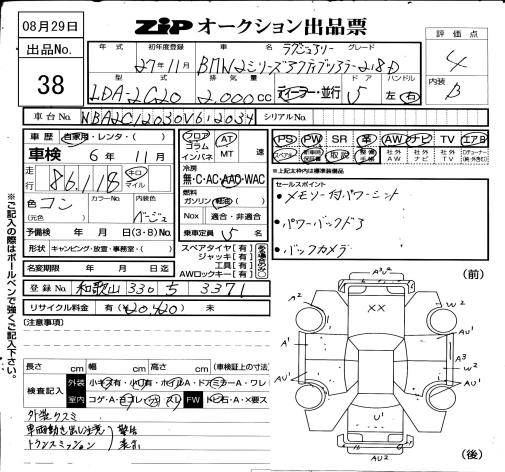 08月29日
ZIP オークション出品票
出品No.
38
年式 初年度登録 車名 グレード
27年11月 BMW2シリーズアクティブツアラー218D ラグジュアリー
評価点
4
内装
B
型式 排気量 ドア ハンドル
LDA-2C20 2,000cc ディーラー・並行 5 左 右
車台No. WBA2C12030V612034 シリアルNo.
車歴 自家用・レンタ・( )
車検 6年11月
走行 86,118 キロ マイル
色 コン (元色) カラーNo. 内装色 ベージュ
予備検 年 月 日(3・8)No.
形状 キャンピング・放置・事務室・( )
名変期限 年 月 日迄
フロア コラム インパネ AT MT 速
冷房 無・C・AC・AAC・WAC
燃料 ガソリン 軽油 ( )
Nox 適合・非適合
乗車定員 5 名
スペアタイヤ[有]
ジャッキ[有]
工具[有]
AWロックキー[有]
ある場合のみ○
PS PW SR 革 AW ナビ TV エアB
スペアキー 取説 整備手帳 社外AW 社外ナビ 社外TV
※上記枠内は標準装備品
セールスポイント
・メモリー付パワーシート
・パワーバックドア
・バックカメラ
登録No. 和歌山 330 ち 3371
リサイクル料金 有(¥20,420) 未
[注意事項]
長さ cm 幅 cm 高さ cm (車検証上の寸法)
検査記入 外装 小キズ有・小凹有・ホイルA・ドアミラーA・ワレ
室内 コゲ・A・ヨゴレ・スレ FW トビ石・A・X要ス
外装クスミ
車両動き出し注意 警告
トランスミッション 表示
※ご記入の際はボールペンで強くご記入下さい。
(前)
A³ν²
A² XX W²
AU¹
A¹ AU¹
A³
W²
AU¹ AU¹
U¹
AU² (後)